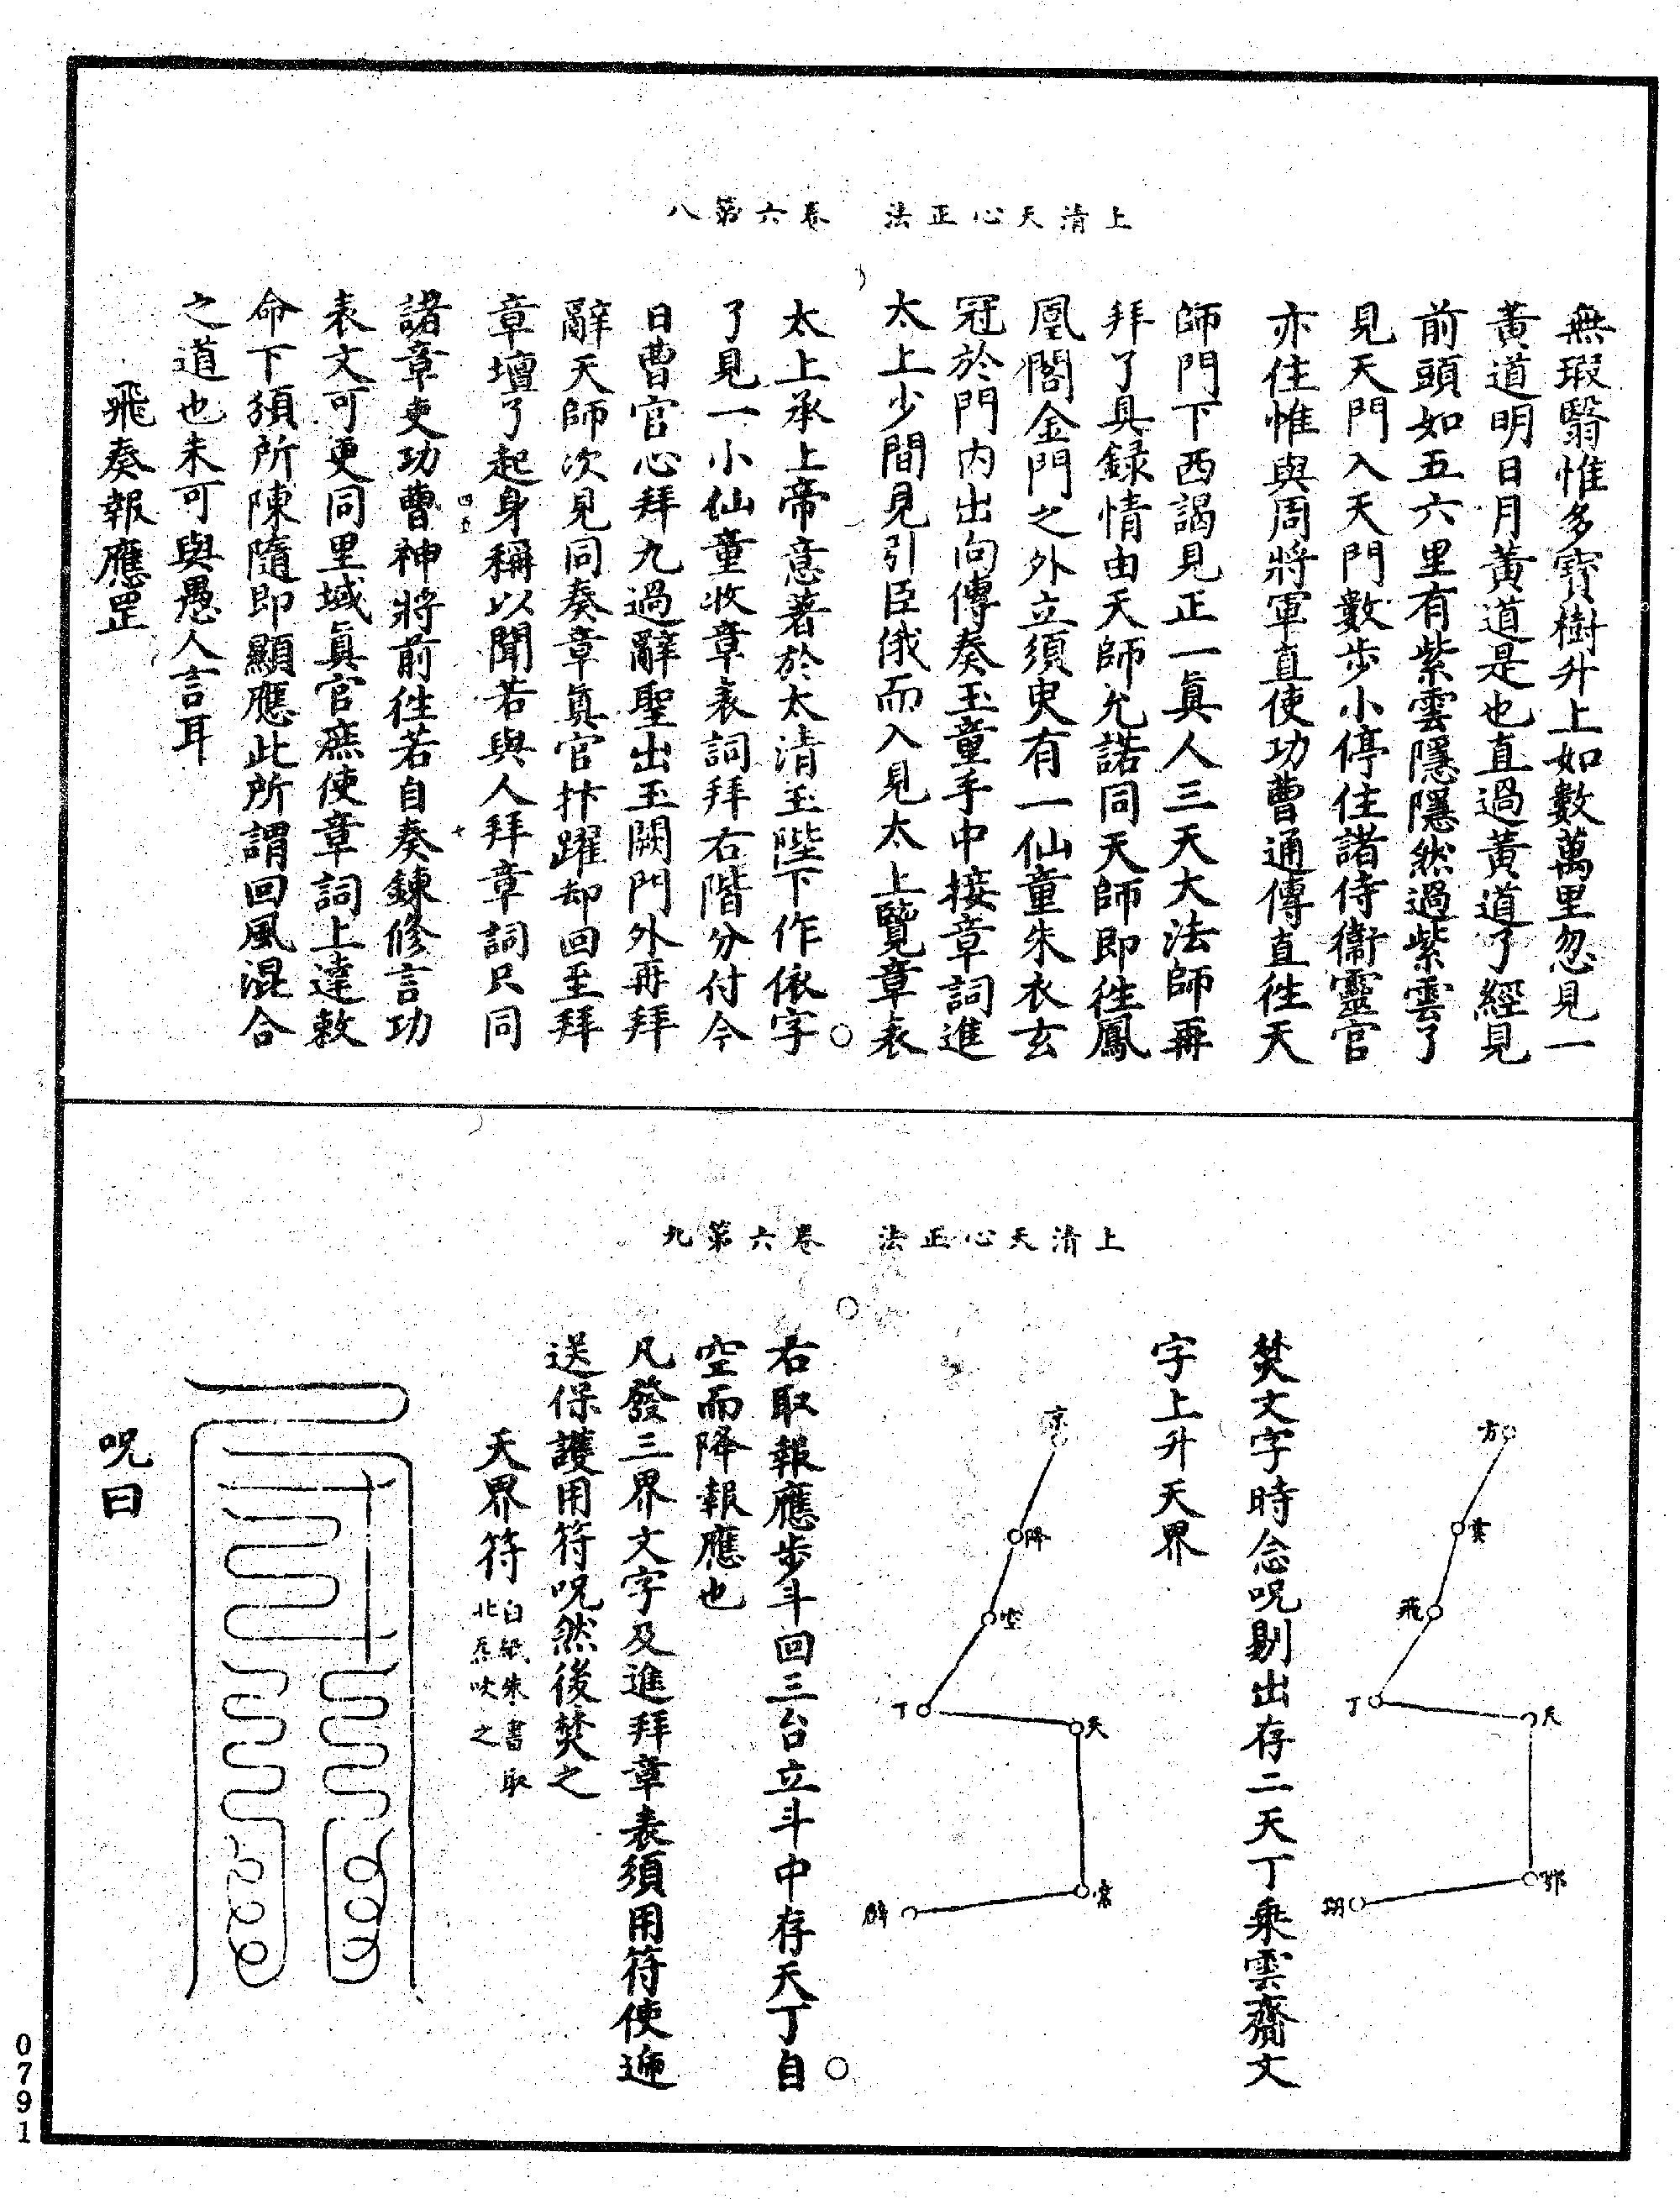 上清天心正法　卷六第八
無瑕翳惟多寶樹升上如數萬里忽見一
黃道明日月黃道是也直過黃道了經見
前頭如五六里有紫雲隱隱然過紫雲了
見天門入天門數步小停住諸侍衞靈官
亦住惟與周將軍直使功曹通傳直徃天
師門下西謁見正一眞人三天大法師再
拜了具録情由天師允諾同天師即徃鳳
凰閣金門之外立須臾有一仙童朱衣玄
冠於門內出向傳奏玉童手中接章詞進
太上少間見引臣俄而入見太上覽章表
太上承上帝意著於太清玉陛下作依字
了見一小仙童收章表詞拜右階分付今
日曹官心拜九過辭聖出玉闕門外再拜
辭天師次見同奏章眞官抃躍却回至拜
章壇了起身稱以聞若與人拜章詞只同
諸章吏功曹神將前徃若自奏錬修言功
表文可更同里域眞官庶使章詞上達敕
命下須所陳隨即顯應此所謂回風混合
之道也未可與愚人言耳
飛奏報應罡
四五
七
上清天心正法　卷六第九
方
雲
飛
丁
天
鄂
朔
焚文字時念呪剔出存二天丁乘雲齎文
字上升天界
京
降
空
丁
天
常
辟
右取報應步斗回三台立斗中存天丁自
空而降報應也
凡發三界文字及進拜章表須用符使遞
送保護用符呪然後焚之
天界符
白紙朱書取
北炁吹之
呪曰
0791